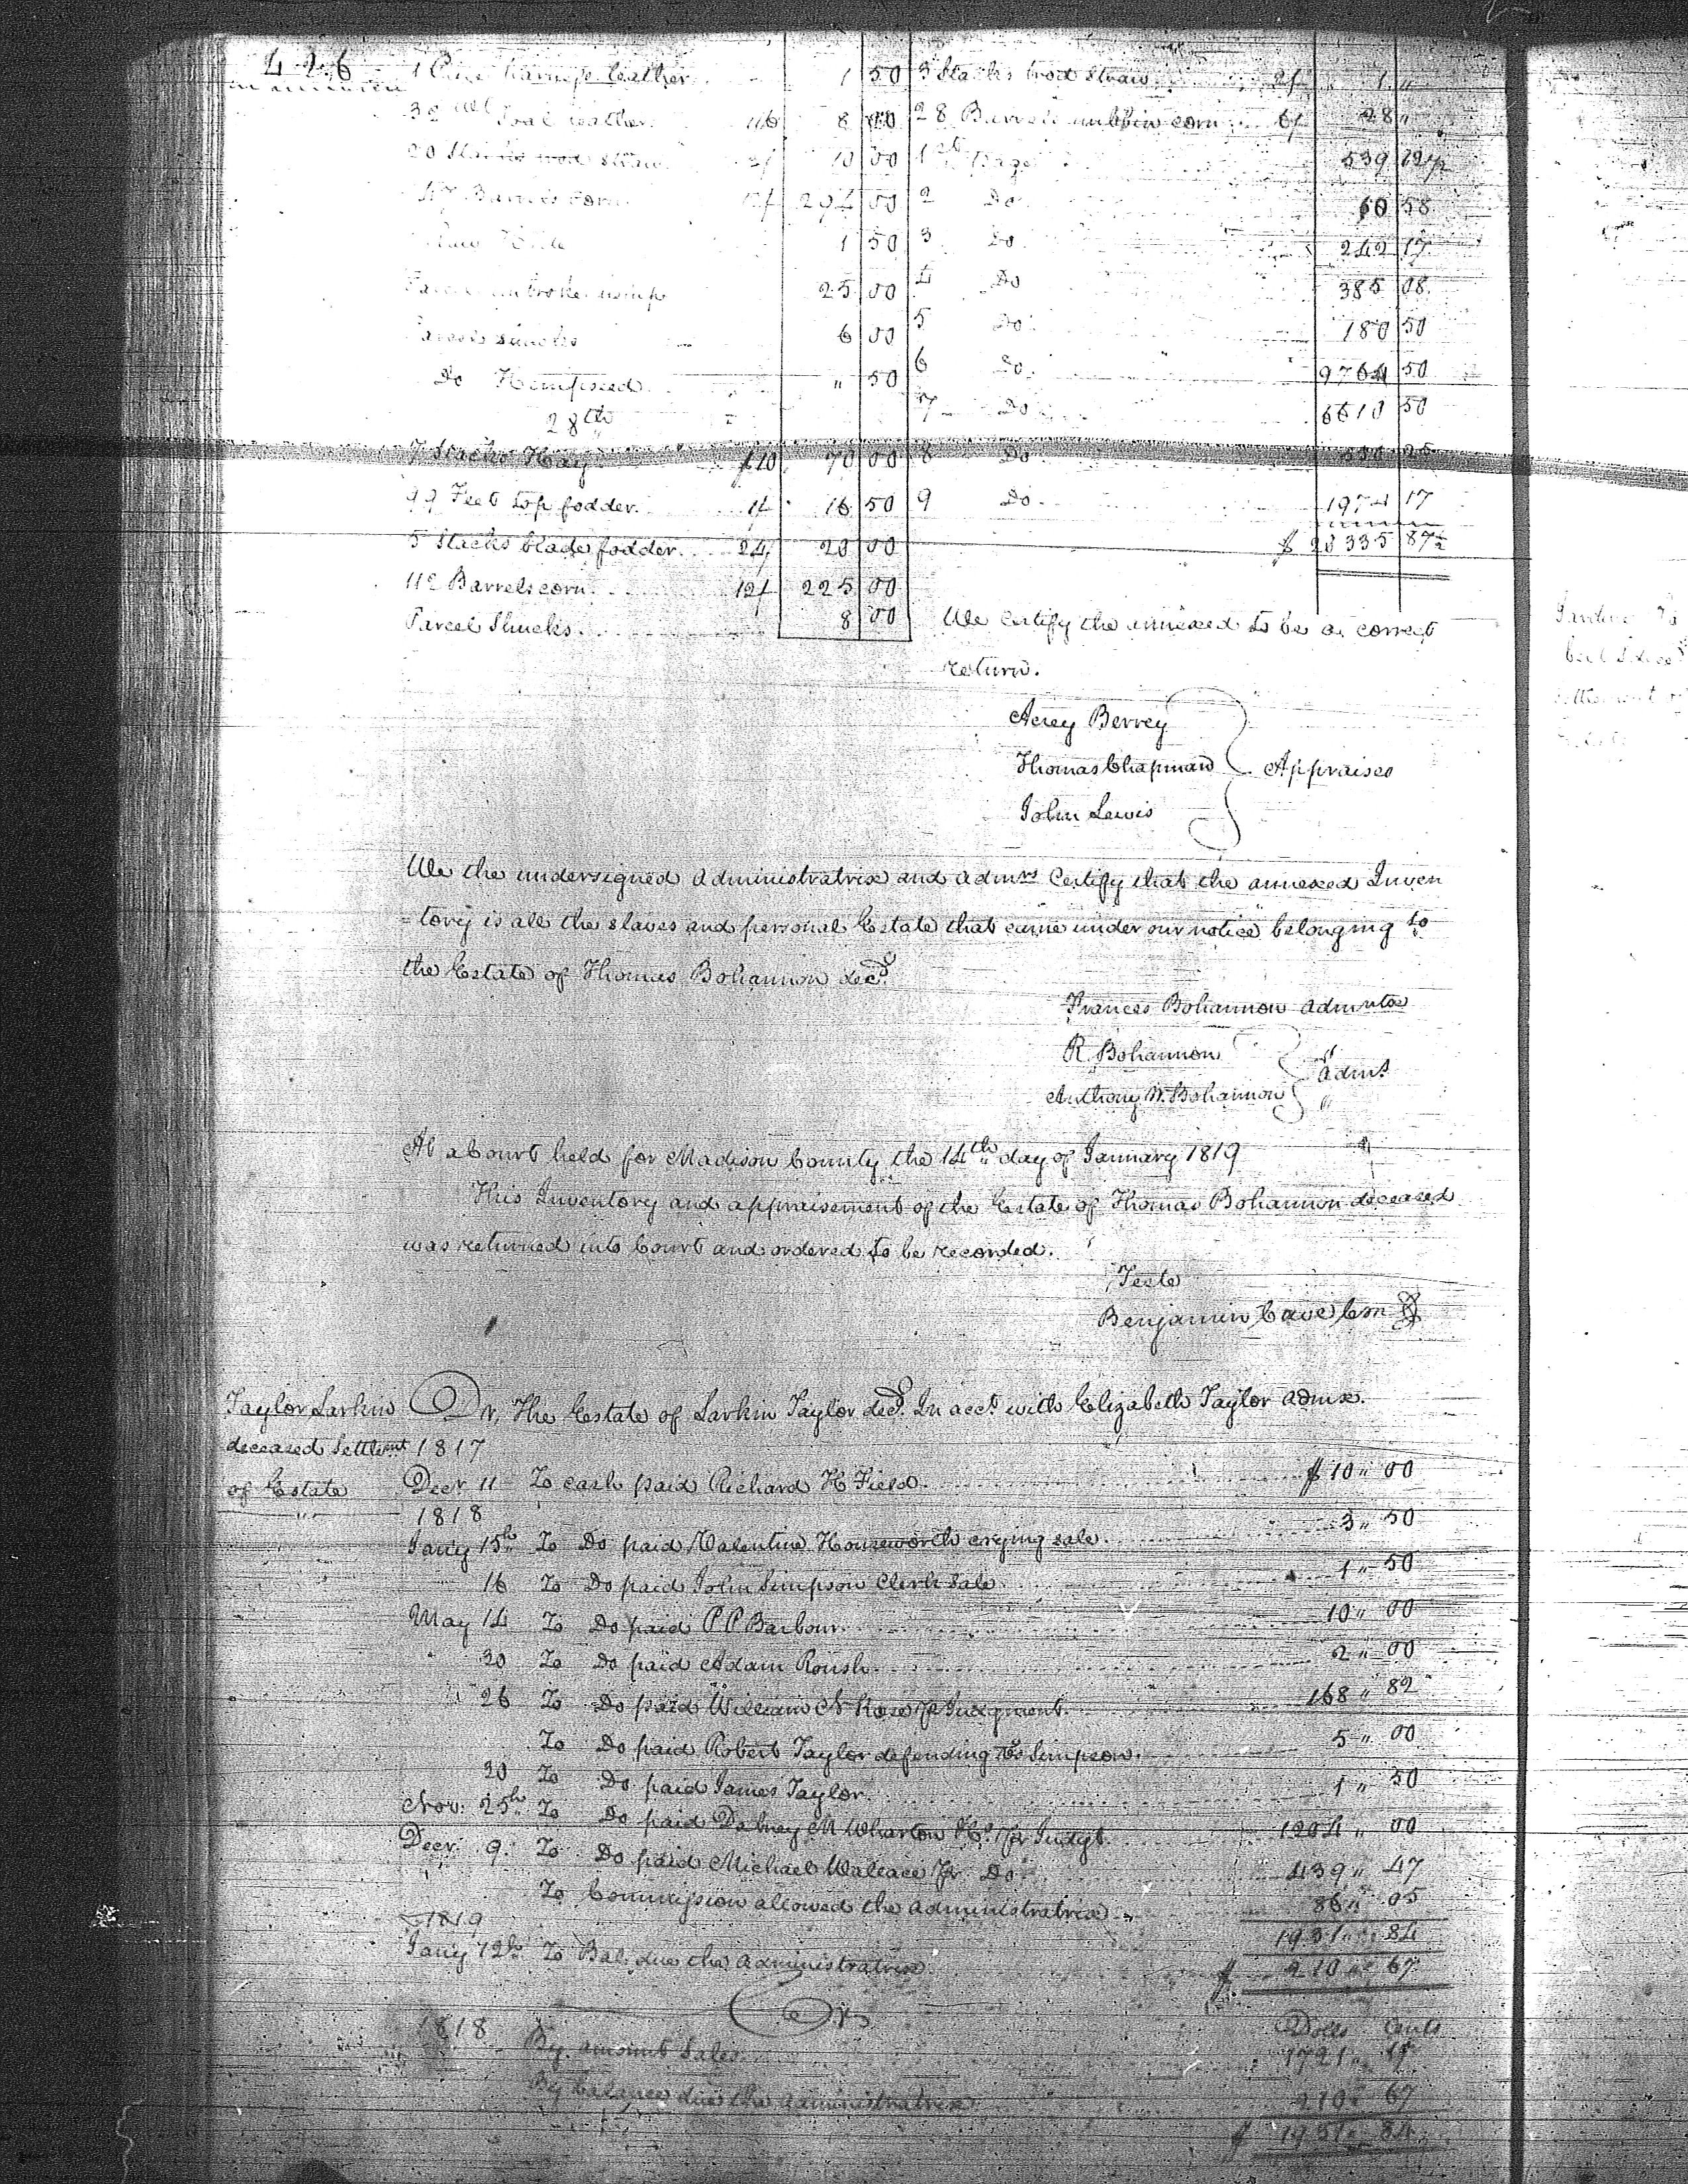 426
1 Piece Harness leather 1 50
32 Soal leather 1/6 8 00
20 Stacks wood straw 3/ 10 00
147 Barrels corn 12/ 294 00
1 50
Parcel unbroke hemp 25 00
Parcel shucks 6 00
Do Hempseed " 50
28th
7 Stacks Hay £10 70 00
99 Feet top fodder 1/ 16 50
5 Stacks blade fodder 24/ 20 00
112 Barrels corn 12/ 225 00
Parcel Shucks 8 00
3 Stacks wood straw 2/ 1 "
28 Barrels nubbin corn 6/ 28 "
1st Page 539 12 1/2
2 Do 60 58
3 Do 242 17
4 Do 385 08
5 Do 180 50
6 Do 9764 50
7 Do 6610 50
8 Do 25
9 Do 1974 17
$ 20335 87 1/2
We Certify the annexed to be a correct
return.
Acrey Berrey
Thomas Chapman Appraises
John Lewis
We the undersigned Administratrix and admrs Certify that the annexed Inven
=tory is all the slaves and personal Estate that came under our notice belonging to
the Estate of Thomas Bohannon decd.
Frances Bohannon admrtx
R. Bohannon
Anthony W. Bohannon Admrs
At a Court held for Madison County the 14th day of January 1819
This Inventory and appraisement of the Estate of Thomas Bohannon deceased
was returned into Court and ordered to be recorded.
Teste
Benjamin Cave Cm
Taylor Larkin
deceased Settlemt
of Estate
Dr, The Estate of Larkin Taylor decd. In acct. with Elizabeth Taylor admx.
1817
Decr 11 To cash paid Richard H Field $10 " 00
1818
Jany 15th To Do paid Valentine Houseworth crying sale 3 " 50
16 To Do paid John Simpson Clerk Sale 1 " 50
May 14 To Do paid P P Barbour 10 " 00
30 To Do paid Adam Roush 2 " 00
26 To Do paid William N Rose pr Judgment 168 " 82
To Do paid Robert Taylor defending vs Simpson 5 " 00
30 To Do paid James Taylor 1 " 50
Nov: 25th To Do paid Dabney M Wharton &Co. pr Judgt. 1204 " 00
Decr 9 To Do paid Michael Wallace pr Do 439 " 47
To Commission allowed the Administratrix 86 " 05
1931 " 84
1819
Jany 12th To Bal. due the Administratrix $ 210 " 67
Cr
1818 Dolls Cents
By amount Sales 1721 " 17
By balance due the Administratrix 210 " 67
$ 1931 " 84